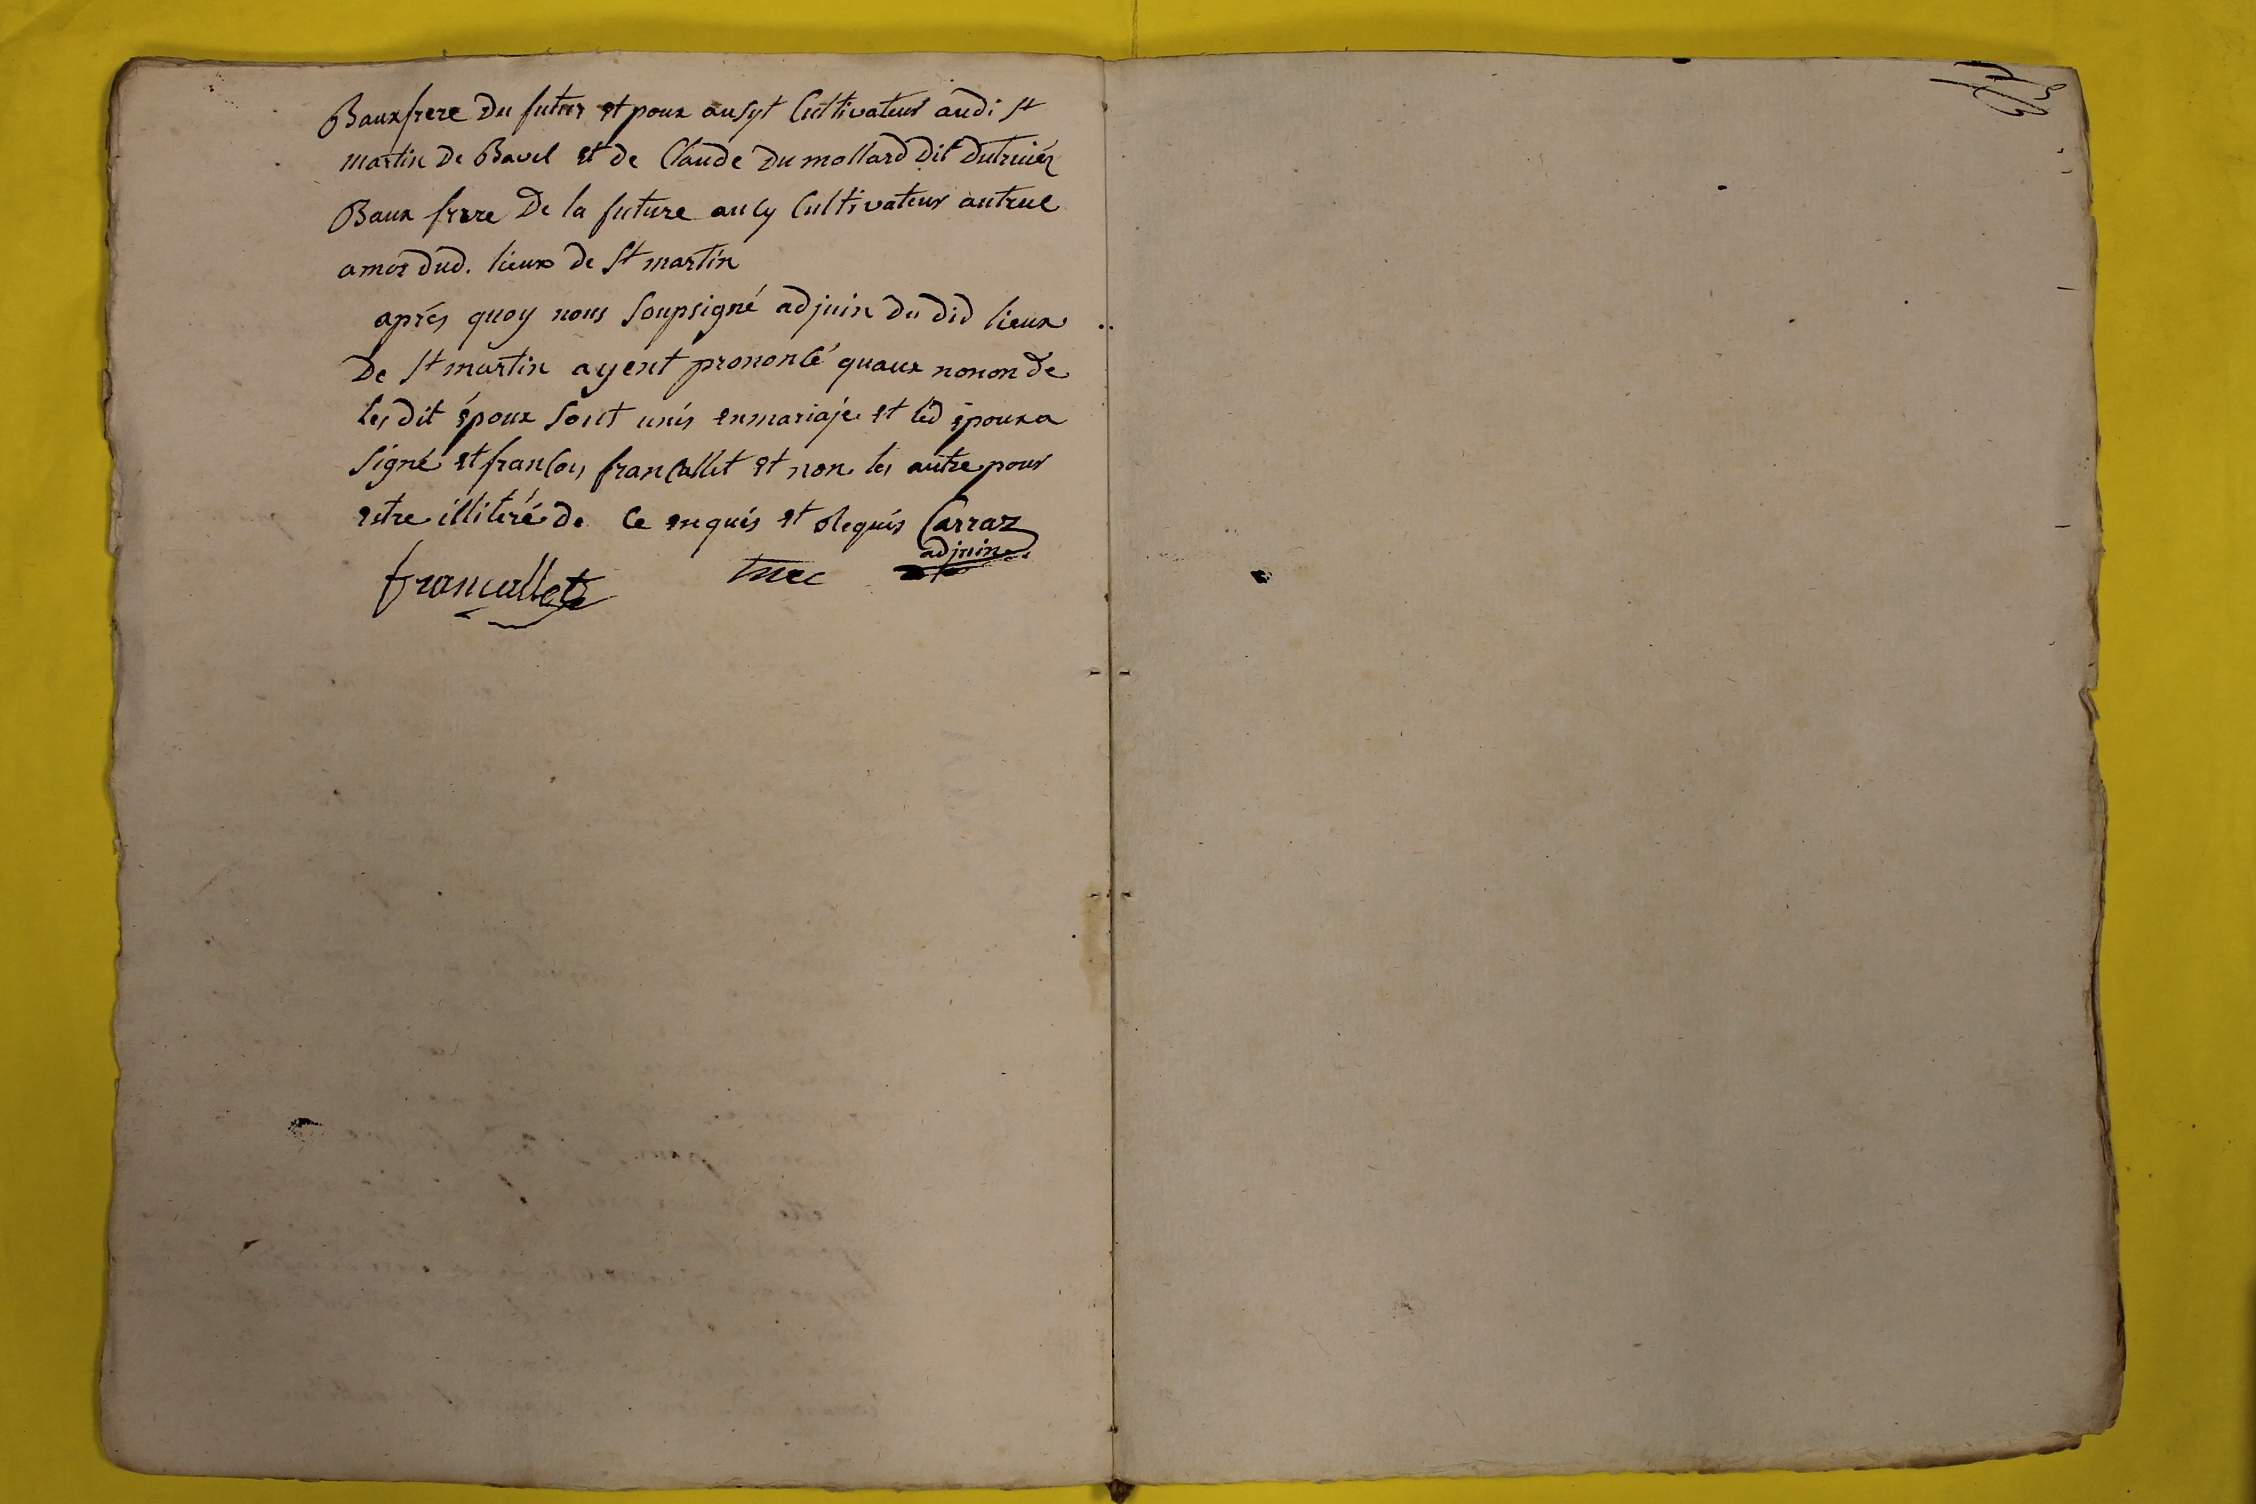 Bauxfrere Du futur et poux ausyt Cultivateur audi St
martin De Bavel et de Claude Dumollard Dit Dutruiez
Baux frere De la future aucy Cultivateur autrue
amor dud. lieux de St martin
aprés quoy nous Soupsigné adjuin du did lieux
De St martin ayent prononcé quaux nonon de
les dit époux Sont unis enmariaje et led époux a
Signé et françois françallet et non les autre pour
estre illiteré de Ce enquis et Requis Carraz
adjuin
françallet